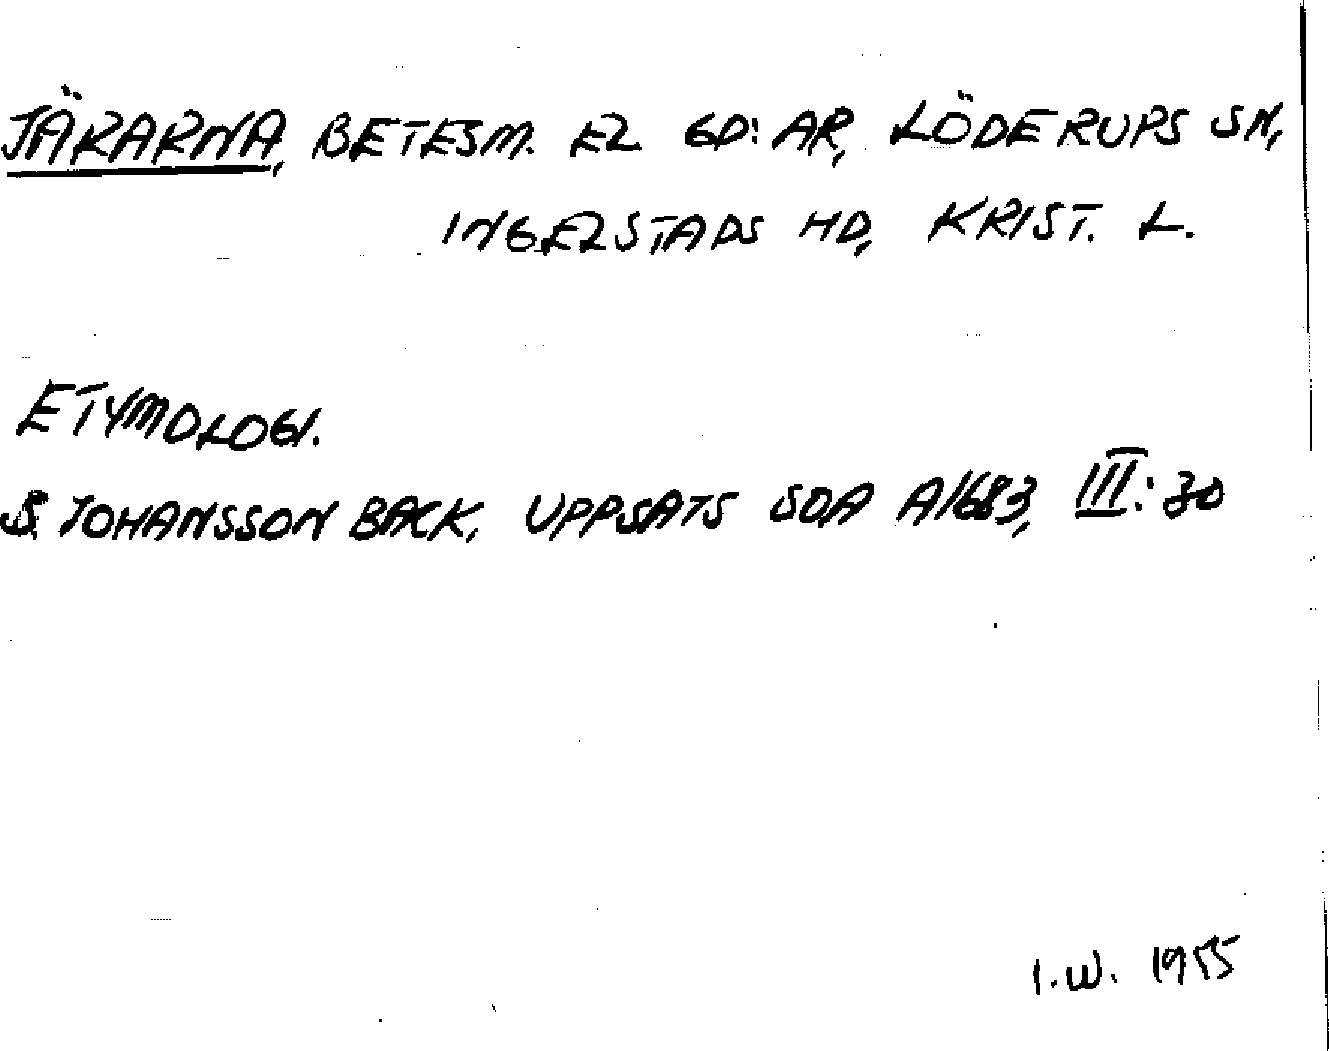 JÄRARNA, BETESM. EL GD:AR, LÖDERUPS SN,
INGELSTADS HD, KRIST. L.
ETYMOLOGI.
S. JOHANSSON BACK, UPPSATS SOA A1683, III:30
I.W. 1955